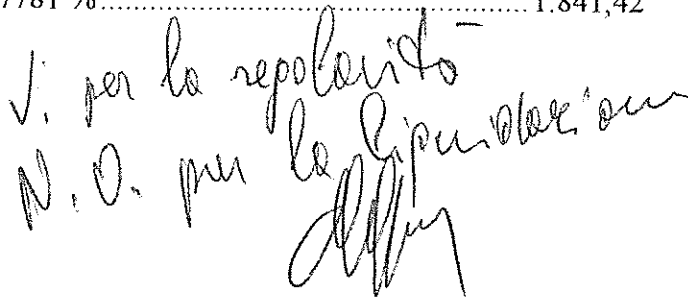 7781 %.......................................................... 1.841,42
V. per la regolarità
N.O. per la liquidazione